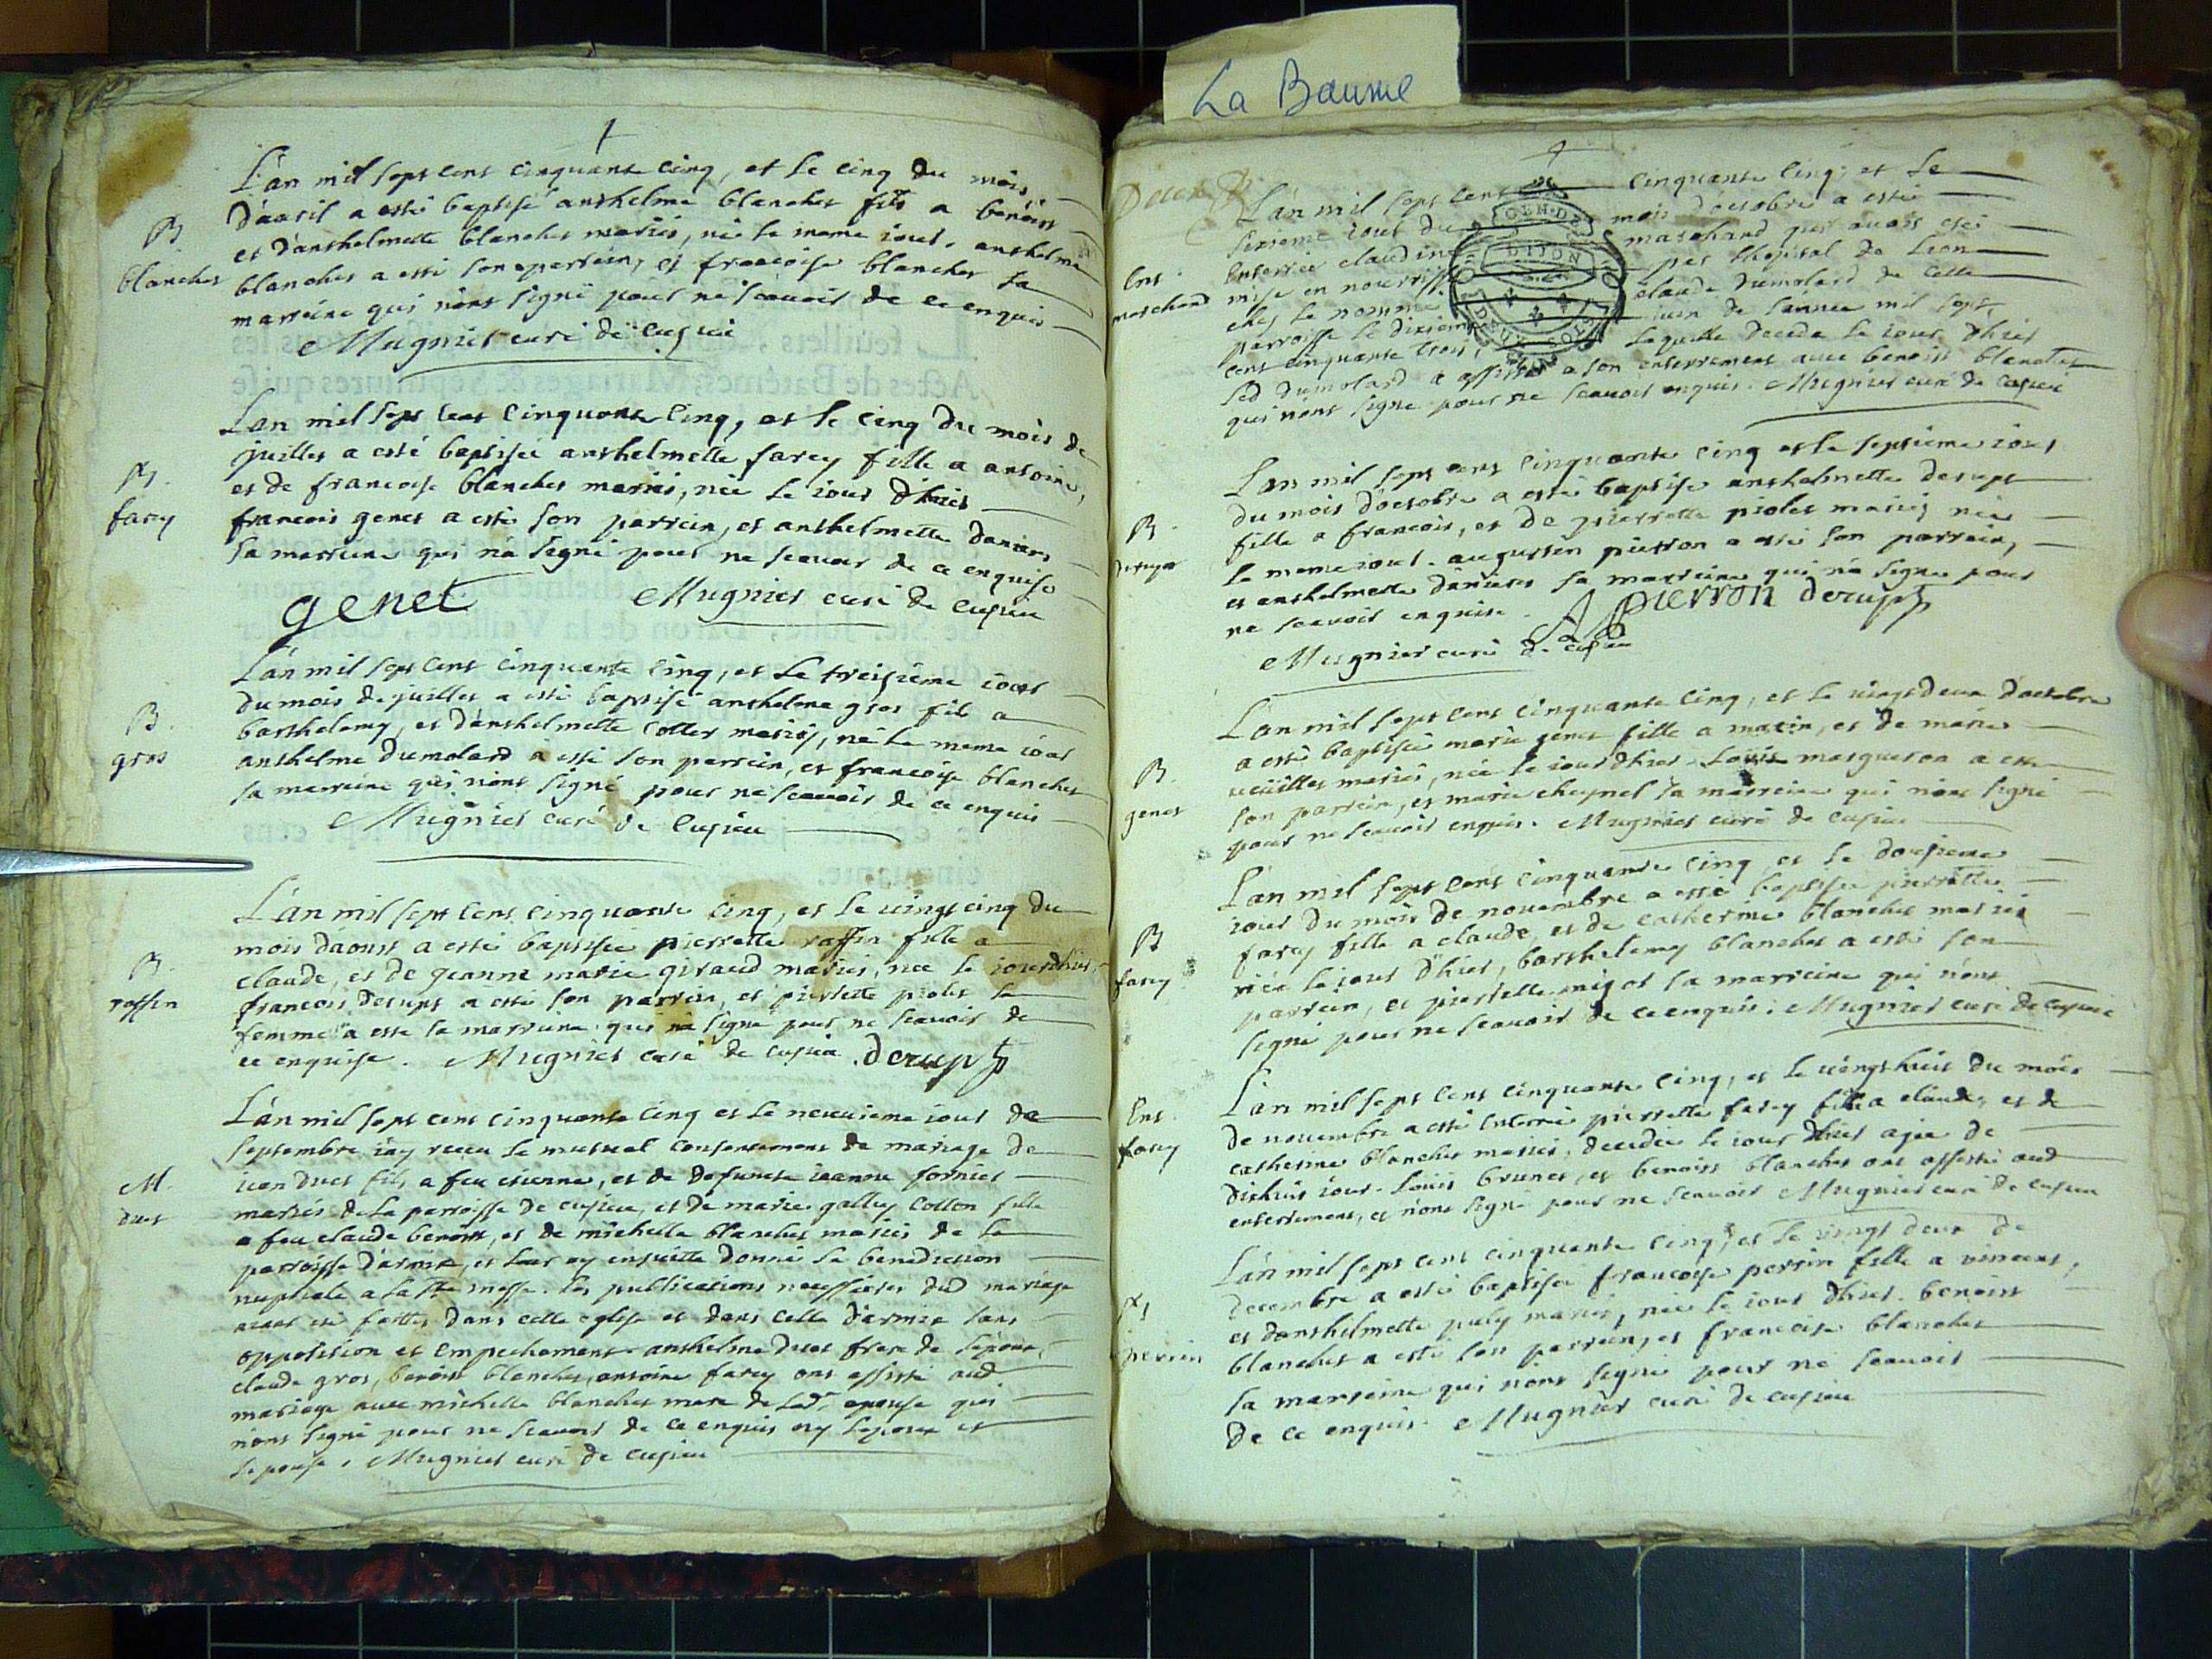 La Baume
L'an mil sept cent cinquante cinq, et le cinq du mois
d'avril a esté baptisé anthelme blanchet fils a benoist
et d'anthelmette blanchet mariés, né le meme iour. anthelme
blanchet a esté son parrein, et francoise blanchet sa
marreine qui n'ont signé pour ne scavoir de ce enquis
Mugnier curé de cusieu
B
blanchet
L'an mil sept cent cinquante cinq, et le cinq du mois de
juillet a esté baptisée anthelmette farcy fille a antoine,
et de francoise blanchet mariés, née le iour d'hier
francois genet a esté son parrein, et anthelmette daniers
sa marreine qui n'a signé pour ne scavoir de ce enquise
genet Mugnier curé de cusieu
B
farcy
L'an mil sept cent cinquante cinq, et le treizieme iour
du mois de juillet a esté baptisé anthelme gros fils a
barthelemy, et d'anthelmette cottet mariés, né le meme iour
anthelme dumolard a esté son parrein, et francoise blanchet
sa marreine qui n'ont signé pour ne scavoir de ce enquis
Mugnier curé de cusieu
B
gros
L'an mil sept cent cinquante cinq, et le vingt cinq du
mois d'aoust a esté baptisée pierrette raffin fille a
claude, et de jeanne marie giraud mariés, née le iour d'hier,
francois derupt a esté son parrein, et pierrette piolet sa
femme a esté sa marreine qui n'a signé pour ne scavoir de
ce enquise. Mugnier curé de cusieu. derupt
B
raffin
L'an mil sept cent cinquante cinq et le neuvieme iour de
septembre i'ay receu le mutuel consentement de mariage de
iean duet fils a feu etienne, et de defunte ieanne fornier
mariés de la parroisse de cusieu, et de marie gallay cotton fille
a feu claude benoist, et de michelle blanchet mariés de la
parroisse d'armix, et leur ay ensuitte donné la benediction
nuptiale a la Ste messe. les publications necessaires dud mariage
aiant été faittes dans cette eglise et dans celle d'armix sans
opposition et empechement anthelme duet frere de l'epoux,
claude gros, benoist blanchet, antoine farcy ont assisté aud
mariage avec michelle blanchet mere de lad. epouse qui
n'ont signé pour ne scavoir de ce enquis ny l'epoux et
l'epouse. Mugnier curé de cusieu
M
duet
L'an mil sept cent cinquante cinq; et le
sixieme iour du mois d'octobre a esté
enterrée claudine marchand qui avoit été
mise en nourrisse par l'hopital de Lion
chez le nommé claude dumolard de cette
parroisse le dixieme iuin de l'année mil sept
cent cinquante trois, laquelle deceda le iour d'hier
led dumolard a assisté a son enterrement avec benoist blanchet
qui n'ont signé pour ne scavoir enquis. Mugnier curé de cusieu
Ent
marchand
GEN. DE
DIJON
L'an mil sept cent cinquante cinq et le septieme iour
du mois d'octobre a esté baptisée anthelmette derupt
fille a francois, et de pierrette piolet mariés, née
le meme iour. augustin pierron a esté son parrein,
et anthelmette daniers sa marreine qui n'a signé pour
ne scavoir enquise. A pierron derupt
Mugnier curé de cusieu
B
derupt
L'an mil sept cent cinquante cinq, et le vingt deux d'octobre
a esté baptisée marie genet fille a matin, et de marie
veüillet mariés, née le iour d'hier. Louis masqueron a esté
son parrein, et marie cheynel sa marreine qui n'ont signé
pour ne scavoir enquis. Mugnier curé de cusieu
B
genet
L'an mil sept cent cinquante cinq et le douzieme
iour du mois de novembre a esté baptisée pierrette
farcy fille a claude, et de catherine blanchet mariés
née le iour d'hier, barthelemy blanchet a esté son
parrein, et pierrette migot sa marreine qui n'ont
signé pour ne scavoir de ce enquis. Mugnier curé de cusieu
B
farcy
L'an mil sept cent cinquante cinq, et le vingt huit du mois
de novembre a esté enterrée pierrette farcy fille a claude, et de
catherine blanchet mariés, decedée le iour d'hier agée de
dixhuit iour. Louis brunet, et benoist blanchet ont assisté aud
enterrement, et n'ont signé pour ne scavoir Mugnier curé de cusieu
Ent
farcy
L'an mil sept cent cinquante cinq, et le vingt deux de
decembre a esté baptisée francoise perrin fille a vincent,
et d'anthelmette puly mariés, née le iour d'hier. benoist
blanchet a esté son parrein, et francoise blanchet
sa marreine qui n'ont signé pour ne scavoir
de ce enquis. Mugnier curé de cusieu
B
perrin